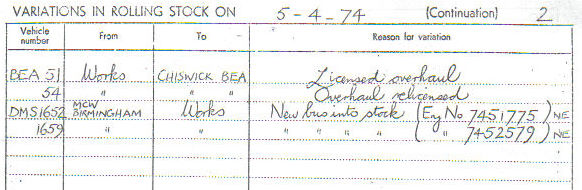 VARIATIONS IN ROLLING STOCK ON 5-4-74 (Continuation) 2
Vehicle number From To Reason for variation
BEA 51 Works CHISWICK BEA Licensed overhaul
54 " " " Overhaul relicensed
DMS1652 MCW BIRMINGHAM Works New bus into stock (Eng No 7451775) NE
1659 " " " " " " ( " 7452579) NE